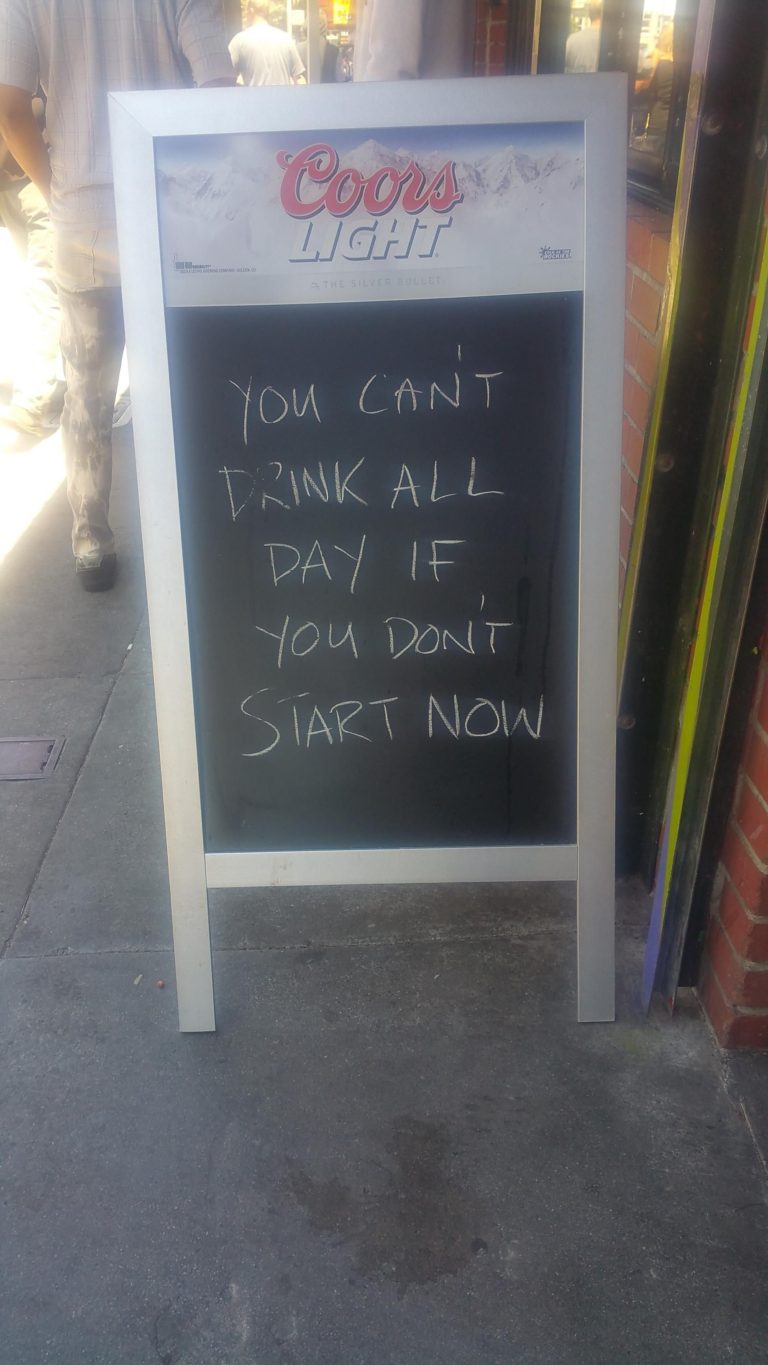 Coors
LIGHT
THE SILVER BULLET
YOU CAN'T
DRINK ALL
DAY IF
YOU DON'T
START NOW